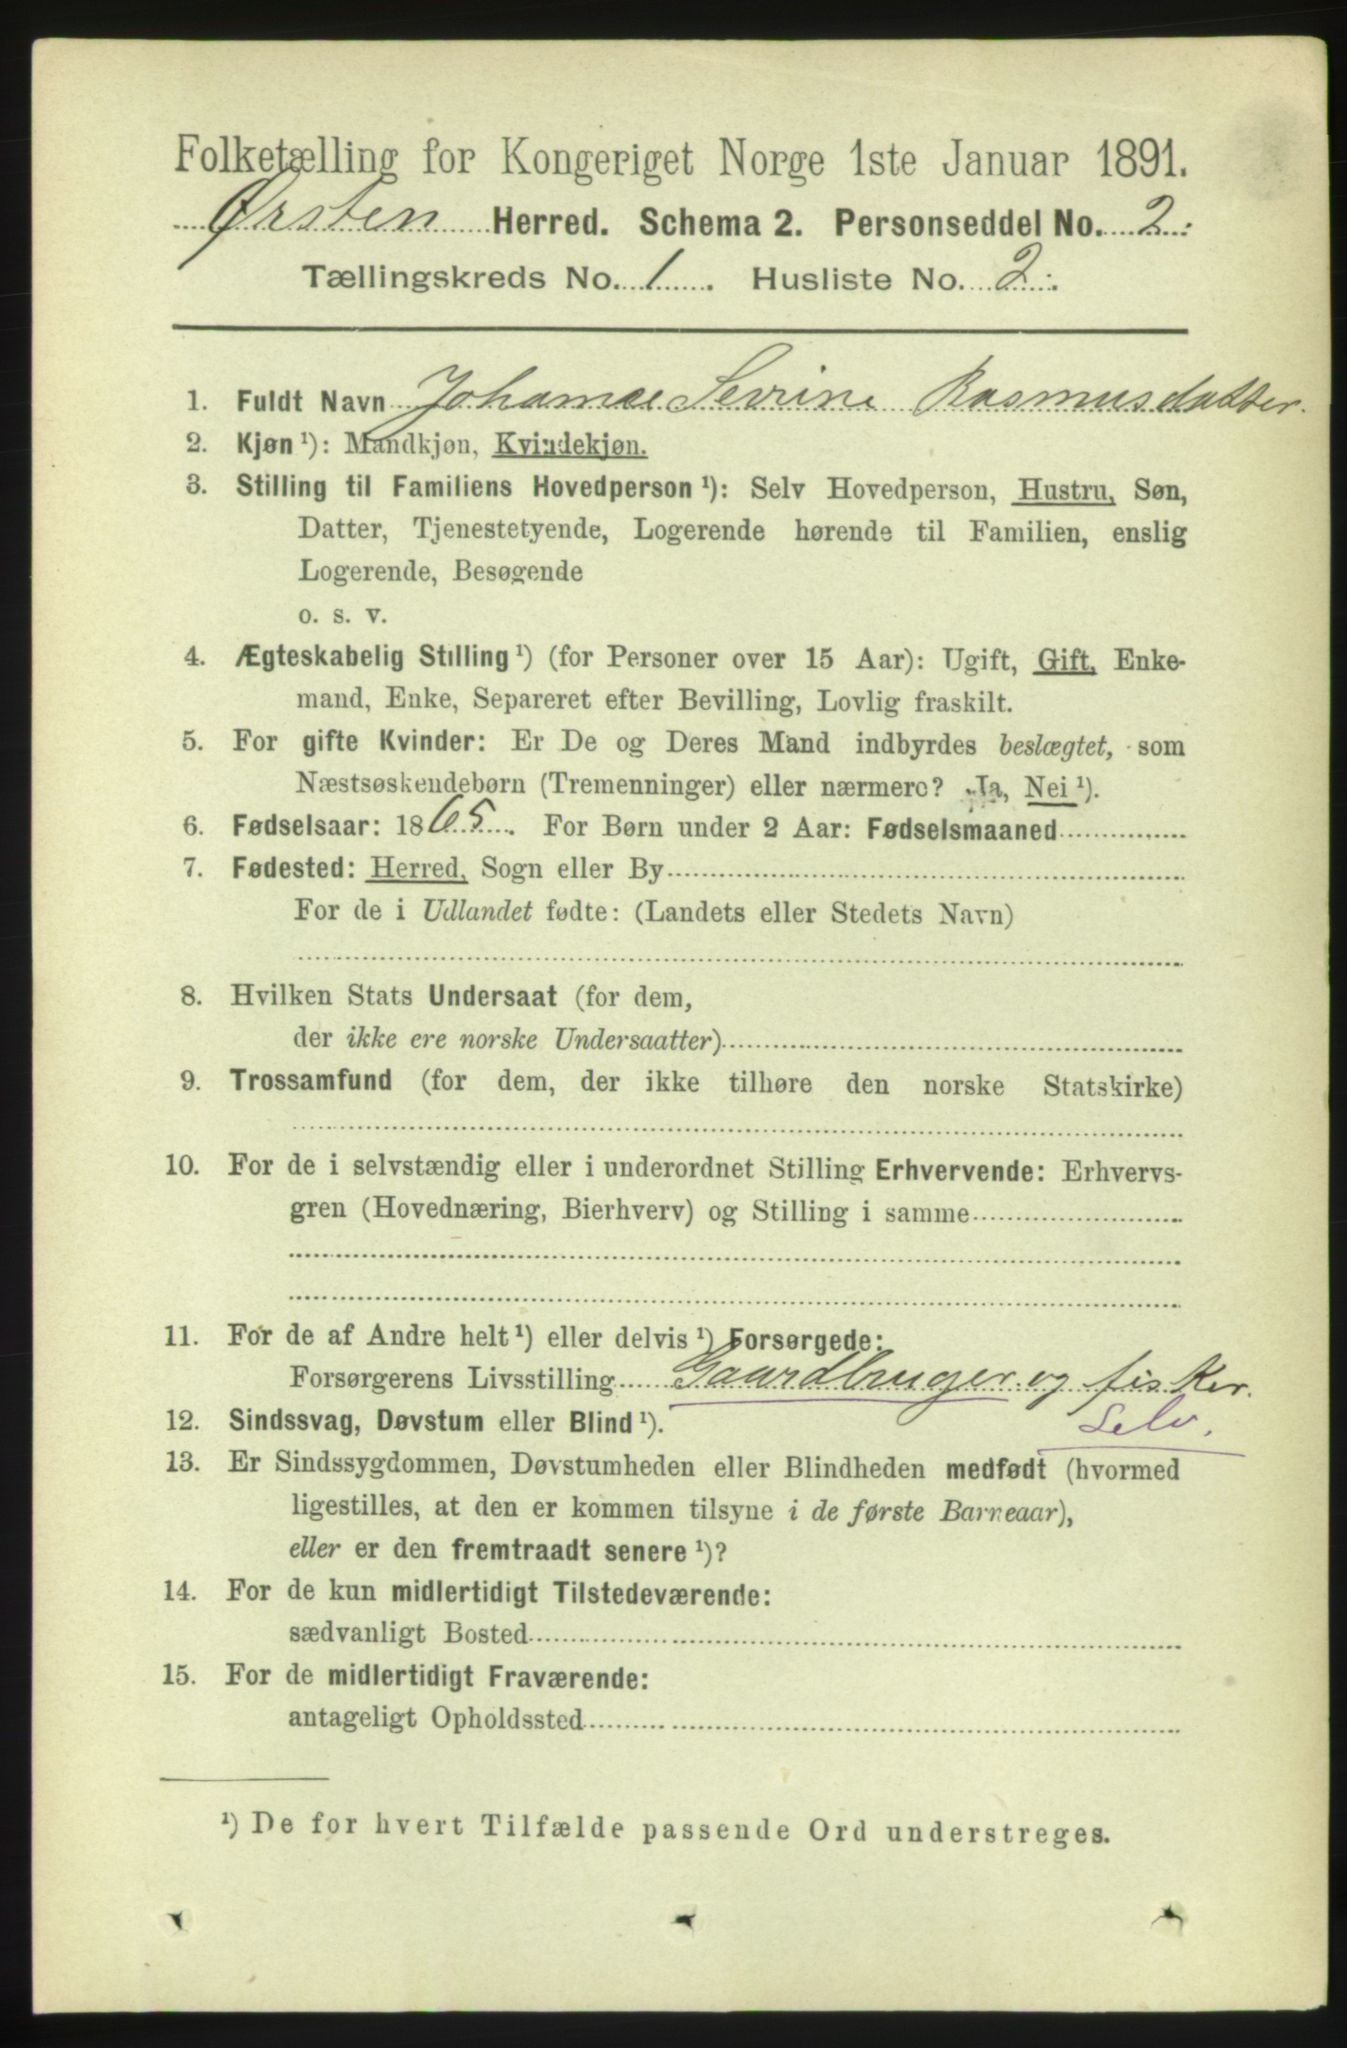 Folketælling for Kongeriget Norge 1ste Januar 1891.
Ørsten Herred. Schema 2. Personseddel No. 2.
Tællingskreds No. 1. Husliste No. 2.
1. Fuldt Navn Johanne Sevrine Rasmusdatter.
2. Kjøn ¹): Mandkjøn, Kvindekjøn.
3. Stilling til Familiens Hovedperson ¹): Selv Hovedperson, Hustru, Søn,
Datter, Tjenestetyende, Logerende hørende til Familien, enslig
Logerende, Besøgende
o. s. v.
4. Ægteskabelig Stilling ¹) (for Personer over 15 Aar): Ugift, Gift, Enke-
mand, Enke, Separeret efter Bevilling, Lovlig fraskilt.
5. For gifte Kvinder: Er De og Deres Mand indbyrdes beslægtet, som
Næstsøskendebørn (Tremenninger) eller nærmere? Ja, Nei ¹).
6. Fødselsaar: 1865. For Børn under 2 Aar: Fødselsmaaned
7. Fødested: Herred, Sogn eller By
For de i Udlandet fødte: (Landets eller Stedets Navn)
8. Hvilken Stats Undersaat (for dem,
der ikke ere norske Undersaatter)
9. Trossamfund (for dem, der ikke tilhøre den norske Statskirke)
10. For de i selvstændig eller i underordnet Stilling Erhvervende: Erhvervs-
gren (Hovednæring, Bierhverv) og Stilling i samme
11. For de af Andre helt ¹) eller delvis ¹) Forsørgede:
Forsørgerens Livsstilling Gaardbruger og fisker.
Selv.
12. Sindssvag, Døvstum eller Blind ¹).
13. Er Sindssygdommen, Døvstumheden eller Blindheden medfødt (hvormed
ligestilles, at den er kommen tilsyne i de første Barneaar),
eller er den fremtraadt senere ¹)?
14. For de kun midlertidigt Tilstedeværende:
sædvanligt Bosted
15. For de midlertidigt Fraværende:
antageligt Opholdssted
¹) De for hvert Tilfælde passende Ord understreges.